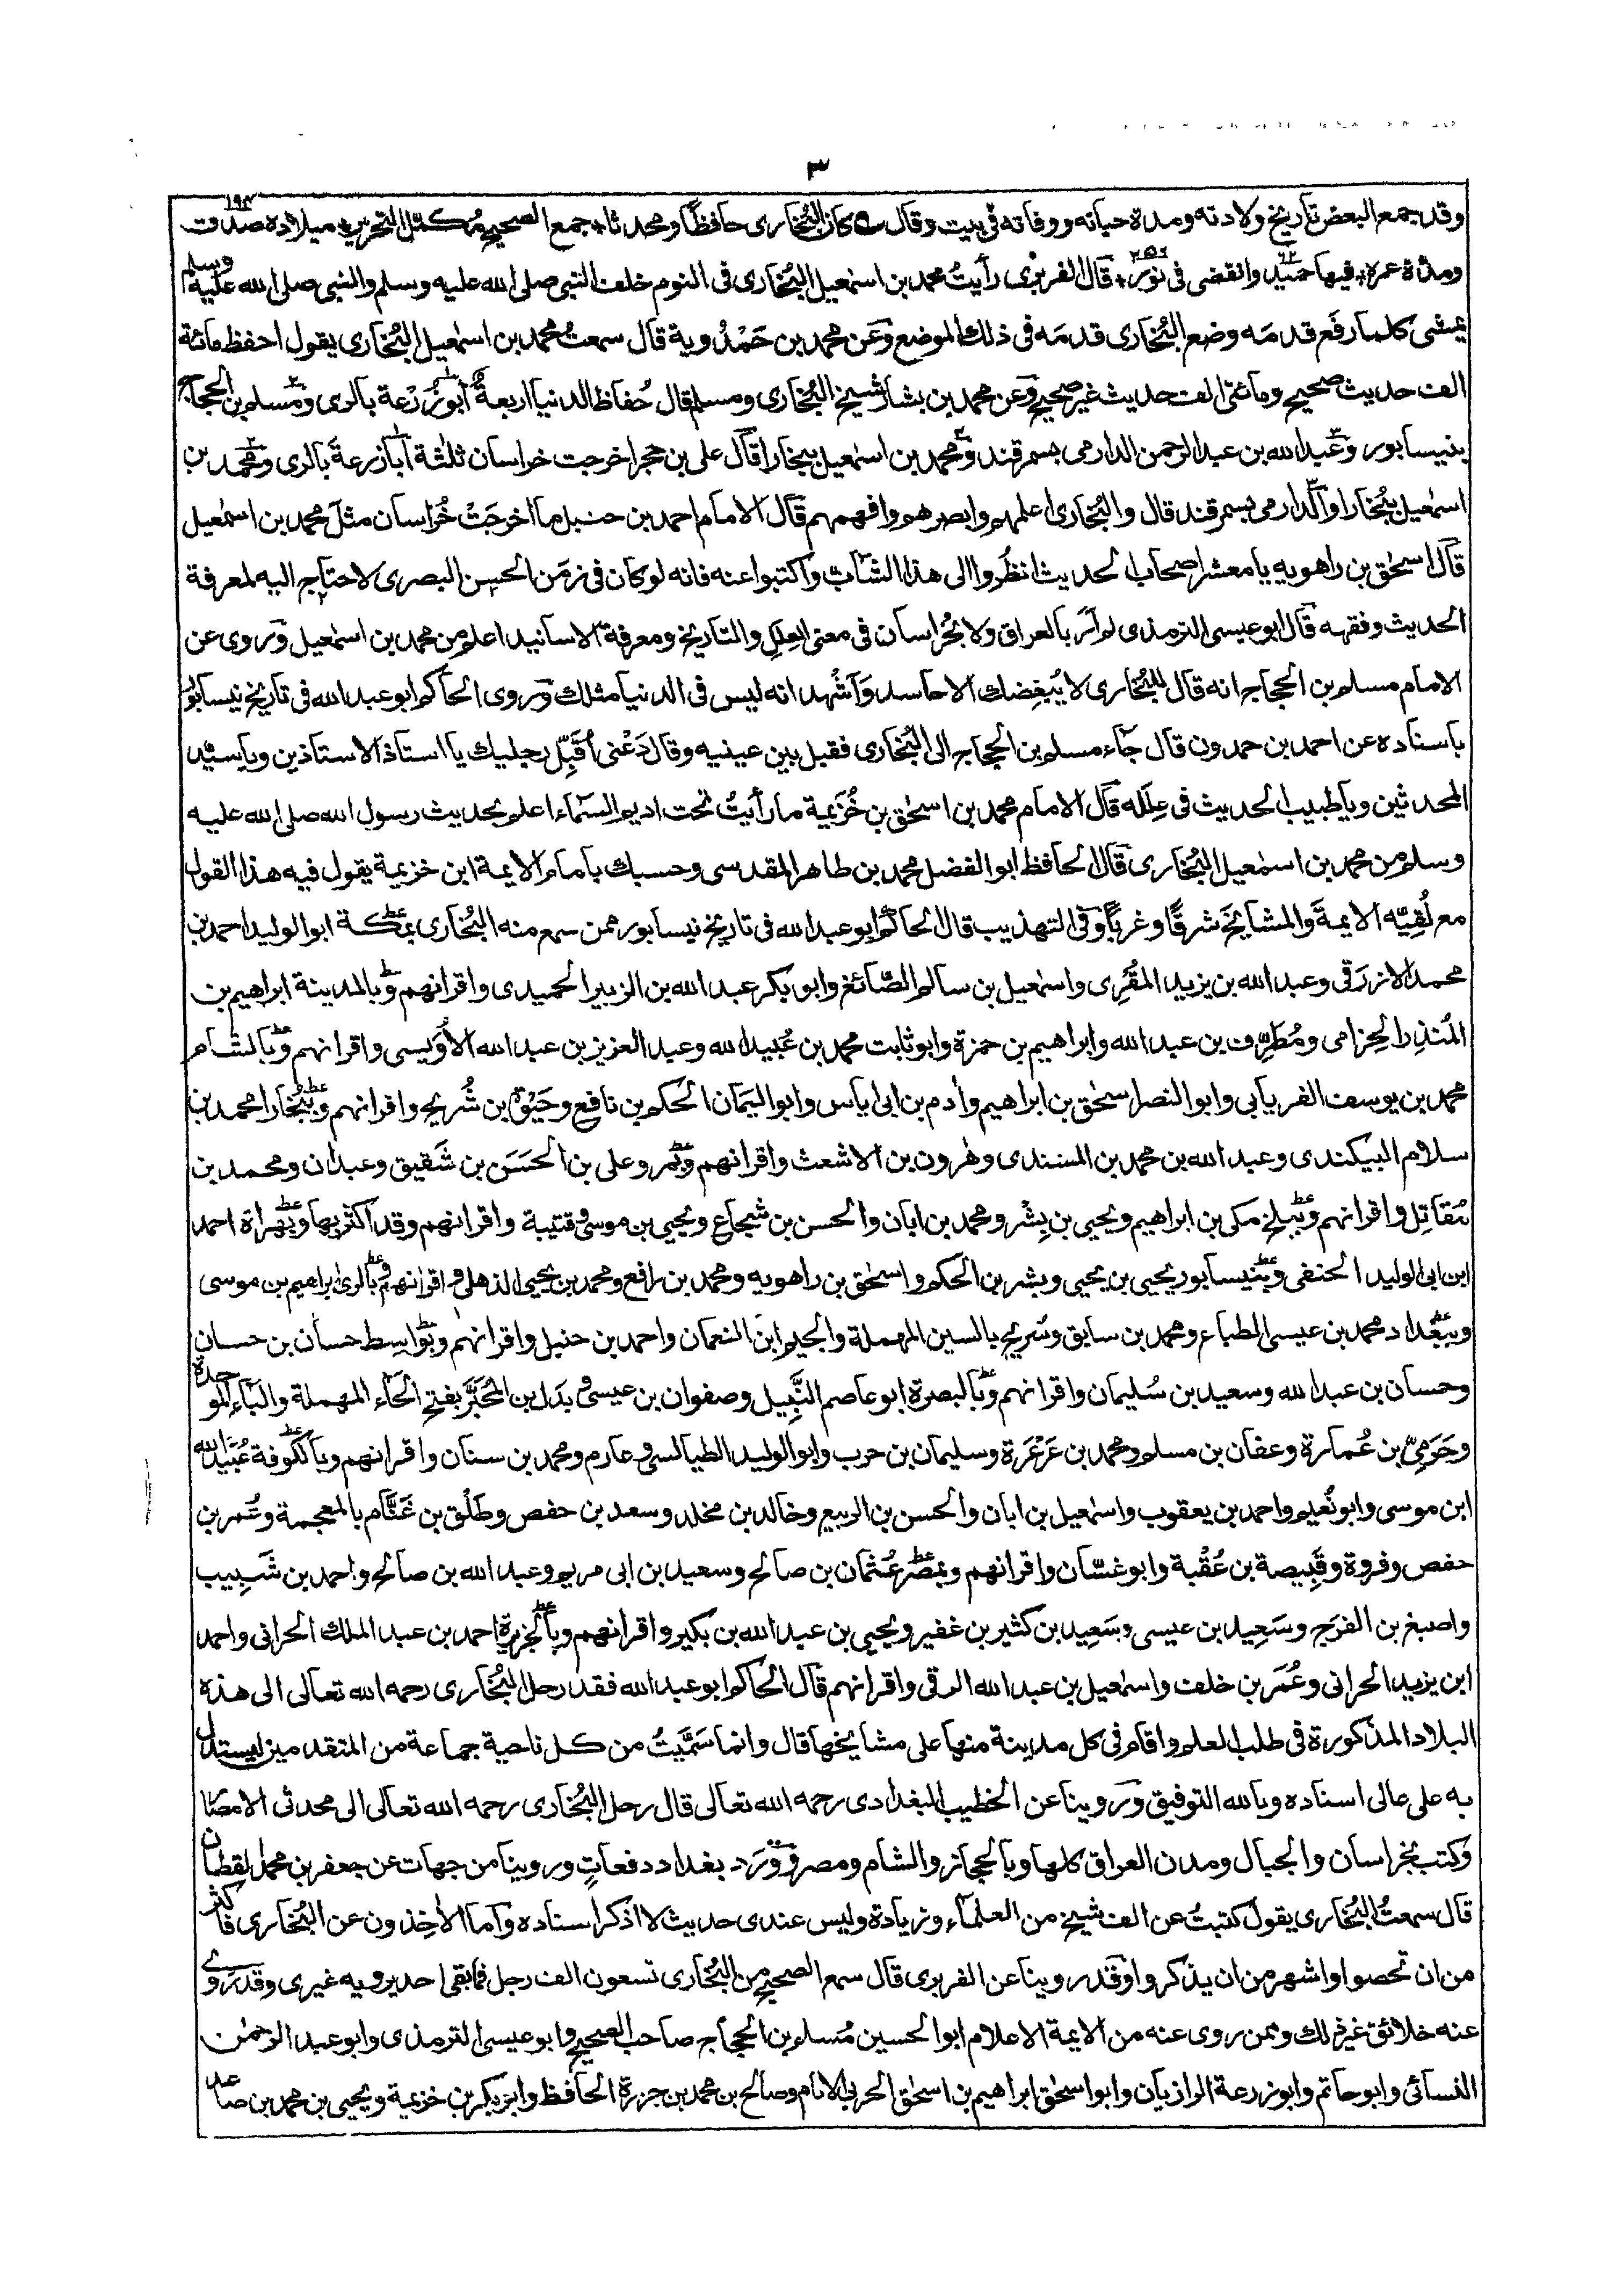 ٣
وقد جمع البعض تاريخ ولادته ومدة حياته ووفاته فى بيت وقال كان البُخارى حافظًا ومحدثا ٭ جمع الصحيح مُكمّل التحرير ٭ ميلاده صدق ١٩٤
ومدّة عمره ٭ فيها حميد ٦٢ وانقضى فى نور ٢٥٦ ٭ قال الفربرى رأيتُ محمد بن اسمٰعيل البُخارى فى النوم خلف النبى صلى الله عليه وسلم والنبى صلى الله عليه وسلم
يمشى كلما رفَع قدمَه وضع البُخارى قدمَه فى ذلك الموضع وعَن محمد بن حَمْدُوية قال سمعتُ محمد بن اسمٰعيل البُخارى يقول احفظ مائة
الف حديث صحيح ومائتى الف حديث غير صحيح وعن محمد بن بشار شيخ البُخارى ومسلم قال حُفاظ الدنيا اربعةٌ ابو زُرْعة بالرى ومُسلم بن الحجاج
بنيسابور وعَبد الله بن عبد الرحمن الدارمى بسمرقند ومحمد بن اسمٰعيل ببخارا قال على بن حجر اخرجت خراسان ثلٰثة ابا زرعة بالرى ومحمد بن
اسمٰعيل ببُخارا والدارمى بسمرقند قال والبُخارى اعلمهم وابصرهم وافهمهم قال الامام احمد بن حنبل ما اخرجَتْ خُراسان مثلَ محمد بن اسمٰعيل
قال اسحٰق بن راهويه يا معشر اصحاب الحديث انظُروا الى هذا الشابّ واكتبوا عنه فانه لو كان فى زمَن الحسن البصرى لاحتاج اليه لمعرفة
الحديث وفقهه قال ابو عيسى الترمذى لم ار بالعراق ولا بخُراسان فى معنى العِلَل والتاريخ ومعرفة الاسانيد اعلم من محمد بن اسمٰعيل وروى عن
الامام مسلم بن الحجاج انه قال للبُخارى لا يُبغِضك الا حاسد وَاَشْهد انه ليس فى الدنيا مثلك وروى الحاكم ابو عبد الله فى تاريخ نيسابور
باسناده عن احمد بن حمدون قال جآء مسلم بن الحجاج الى البُخارى فقبل بين عينيه وقال دَعْنى اُقَبِّل رجليك يا استاذ الاستاذين ويا سيّد
المحدثين ويا طبيب الحديث فى عِلَله قال الامام محمد بن اسحٰق بن خُزَيمة ما رأيتُ تحت اديم السّمآء اعلم بحديث رسول الله صلى الله عليه
وسلم من محمد بن اسمٰعيل البُخارى قال الحافظ ابو الفضل محمد بن طاهر المقدسى وحسبك بامام الايمة ابن خزيمة يقول فيه هذا القول
مع لُقِيّه الايمةَ والمشايخَ شرقًا وغربًا وفى التهذيب قال الحاكم ابو عبد الله فى تاريخ نيسابور ممن سمع منه البُخارى بمكة ابو الوليد احمد بن
محمد الازرَقى وعبد الله بن يزيد المُقْرِى واسمٰعيل بن سالم الصّائغ وابو بكر عبد الله بن الزبير الحميدى واقرانهم وبالمدينة ابراهيم بن
المُنذِر الحِزامى ومُطَرِّف بن عبد الله وابراهيم بن حمزة وابو ثابت محمد بن عُبيد الله وعبد العزيز بن عبد الله الاُوَيسى واقرانهم وبالشام
محمد بن يوسف الفريابى وابو النصر اسحٰق بن ابراهيم واٰدم بن ابى اياس وابو اليمَان الحَكم بن نافع وحَيْوة بن شُريح واقرانهم وببُخارا محمد بن
سلام البيكندى وعبد الله بن محمد بن المسندى وهٰرون بن الاشعث واقرانهم وبمرو على بن الحَسَن بن شَقيق وعبدان ومحمد بن
مُقاتِل واقرانهم وببلخ مكى بن ابراهيم ويحيى بن بِشْر ومحمد بن ابان والحسن بن شجاع ويحيى بن موسى وقتيبة واقرانهم وقد اكثر بها وبهراة احمد
ابن ابى الوليد الحنفى وبنيسابور يحيى بن يحيى وبشر بن الحكم واسحٰق بن راهويه ومحمد بن رافع ومحمد بن يحيى الذهلى واقرانهم وبالرى ابراهيم بن موسى
وببغداد محمد بن عيسى الطباع ومحمد بن سابق وسُريج بالسين المهملة والجيم ابن النعمان واحمد بن حنبل واقرانهم وبواسِط حسان بن حسان
وحسان بن عبد الله وسعيد بن سُليمان واقرانهم وبالبصرة ابو عاصم النَّبِيل وصفوان بن عيسى وبدَل بن المُحَبَّر بفتح الحاء المهملة والبآء الموحدة
وحَرَمِىّ بن عُمارة وعفان بن مسلم ومحمد بن عَرْعَرة وسليمان بن حرب وابو الوليد الطيالسى وعارم ومحمد بن سنان واقرانهم وبالكوفة عُبَيد الله
ابن موسى وابو نُعيم واحمد بن يعقوب واسمٰعيل بن ابان والحسن بن الربيع وخالد بن مخلد وسعد بن حفص وطَلْق بن غَنَّام بالمعجمة وعُمر بن
حفص وفروة وقَبِيصة بن عُقْبة وابو غسّان واقرانهم وبمصر عُثمان بن صالح وسعيد بن ابى مريم وعبد الله بن صالح واحمد بن شَبِيب
واصبغ بن الفرَج وسَعِيد بن عيسى وسَعِيد بن كثير بن غفير ويحيى بن عبد الله بن بكير واقرانهم وبالجزيرة احمد بن عبد الملك الحرانى واحمد
ابن يزيد الحرانى وعُمَر بن خلف واسمٰعيل بن عبد الله الرقى واقرانهم قال الحاكم ابو عبد الله فقد رحل البُخارى رحمه الله تعالى الى هذه
البلاد المذكورة فى طلب العلم واقام فى كل مدينة منها على مشايخها قال وانما سَمَّيتُ من كل ناحية جماعة من المتقدمين ليستدل
به على عالى اسناده وبالله التوفيق وروينا عن الخطيب البغدادى رحمه الله تعالى قال رحل البُخارى رحمه الله تعالى الى محدثى الامصا
وكتب بخراسان والجبال ومدن العراق كلها وبالحجاز والشام ومصر ووَرَد بغداد دفعاتٍ وروينا من جهات عن جعفر بن محمد القطان
قال سمعتُ البُخارى يقول كتبتُ عن الف شيخ من العلمآء وزيادة وليس عندى حديث لا اذكر اسناده وآما الاٰخذون عن البُخارى فاكثر
من ان تحصوا واشهر من ان يذكروا وقد روينا عن الفربرى قال سمع الصحيح من البُخارى تسعون الف رجل فما بقى احد يرويه غيرى وقد روى
عنه خلائق غير ذلك وممن روى عنه من الايمة الاعلام ابو الحسين مُسلم بن الحجاج صاحب الصحيح وابو عيسى الترمذى وابو عبد الرحمٰن
النسائى وابو حاتم وابو زرعة الرازيان وابو اسحٰق ابراهيم بن اسحٰق الحربى الامام وصالح بن محمد بن جزرة الحافظ وابو بكر بن خزيمة ويحيى بن محمد بن صاعد